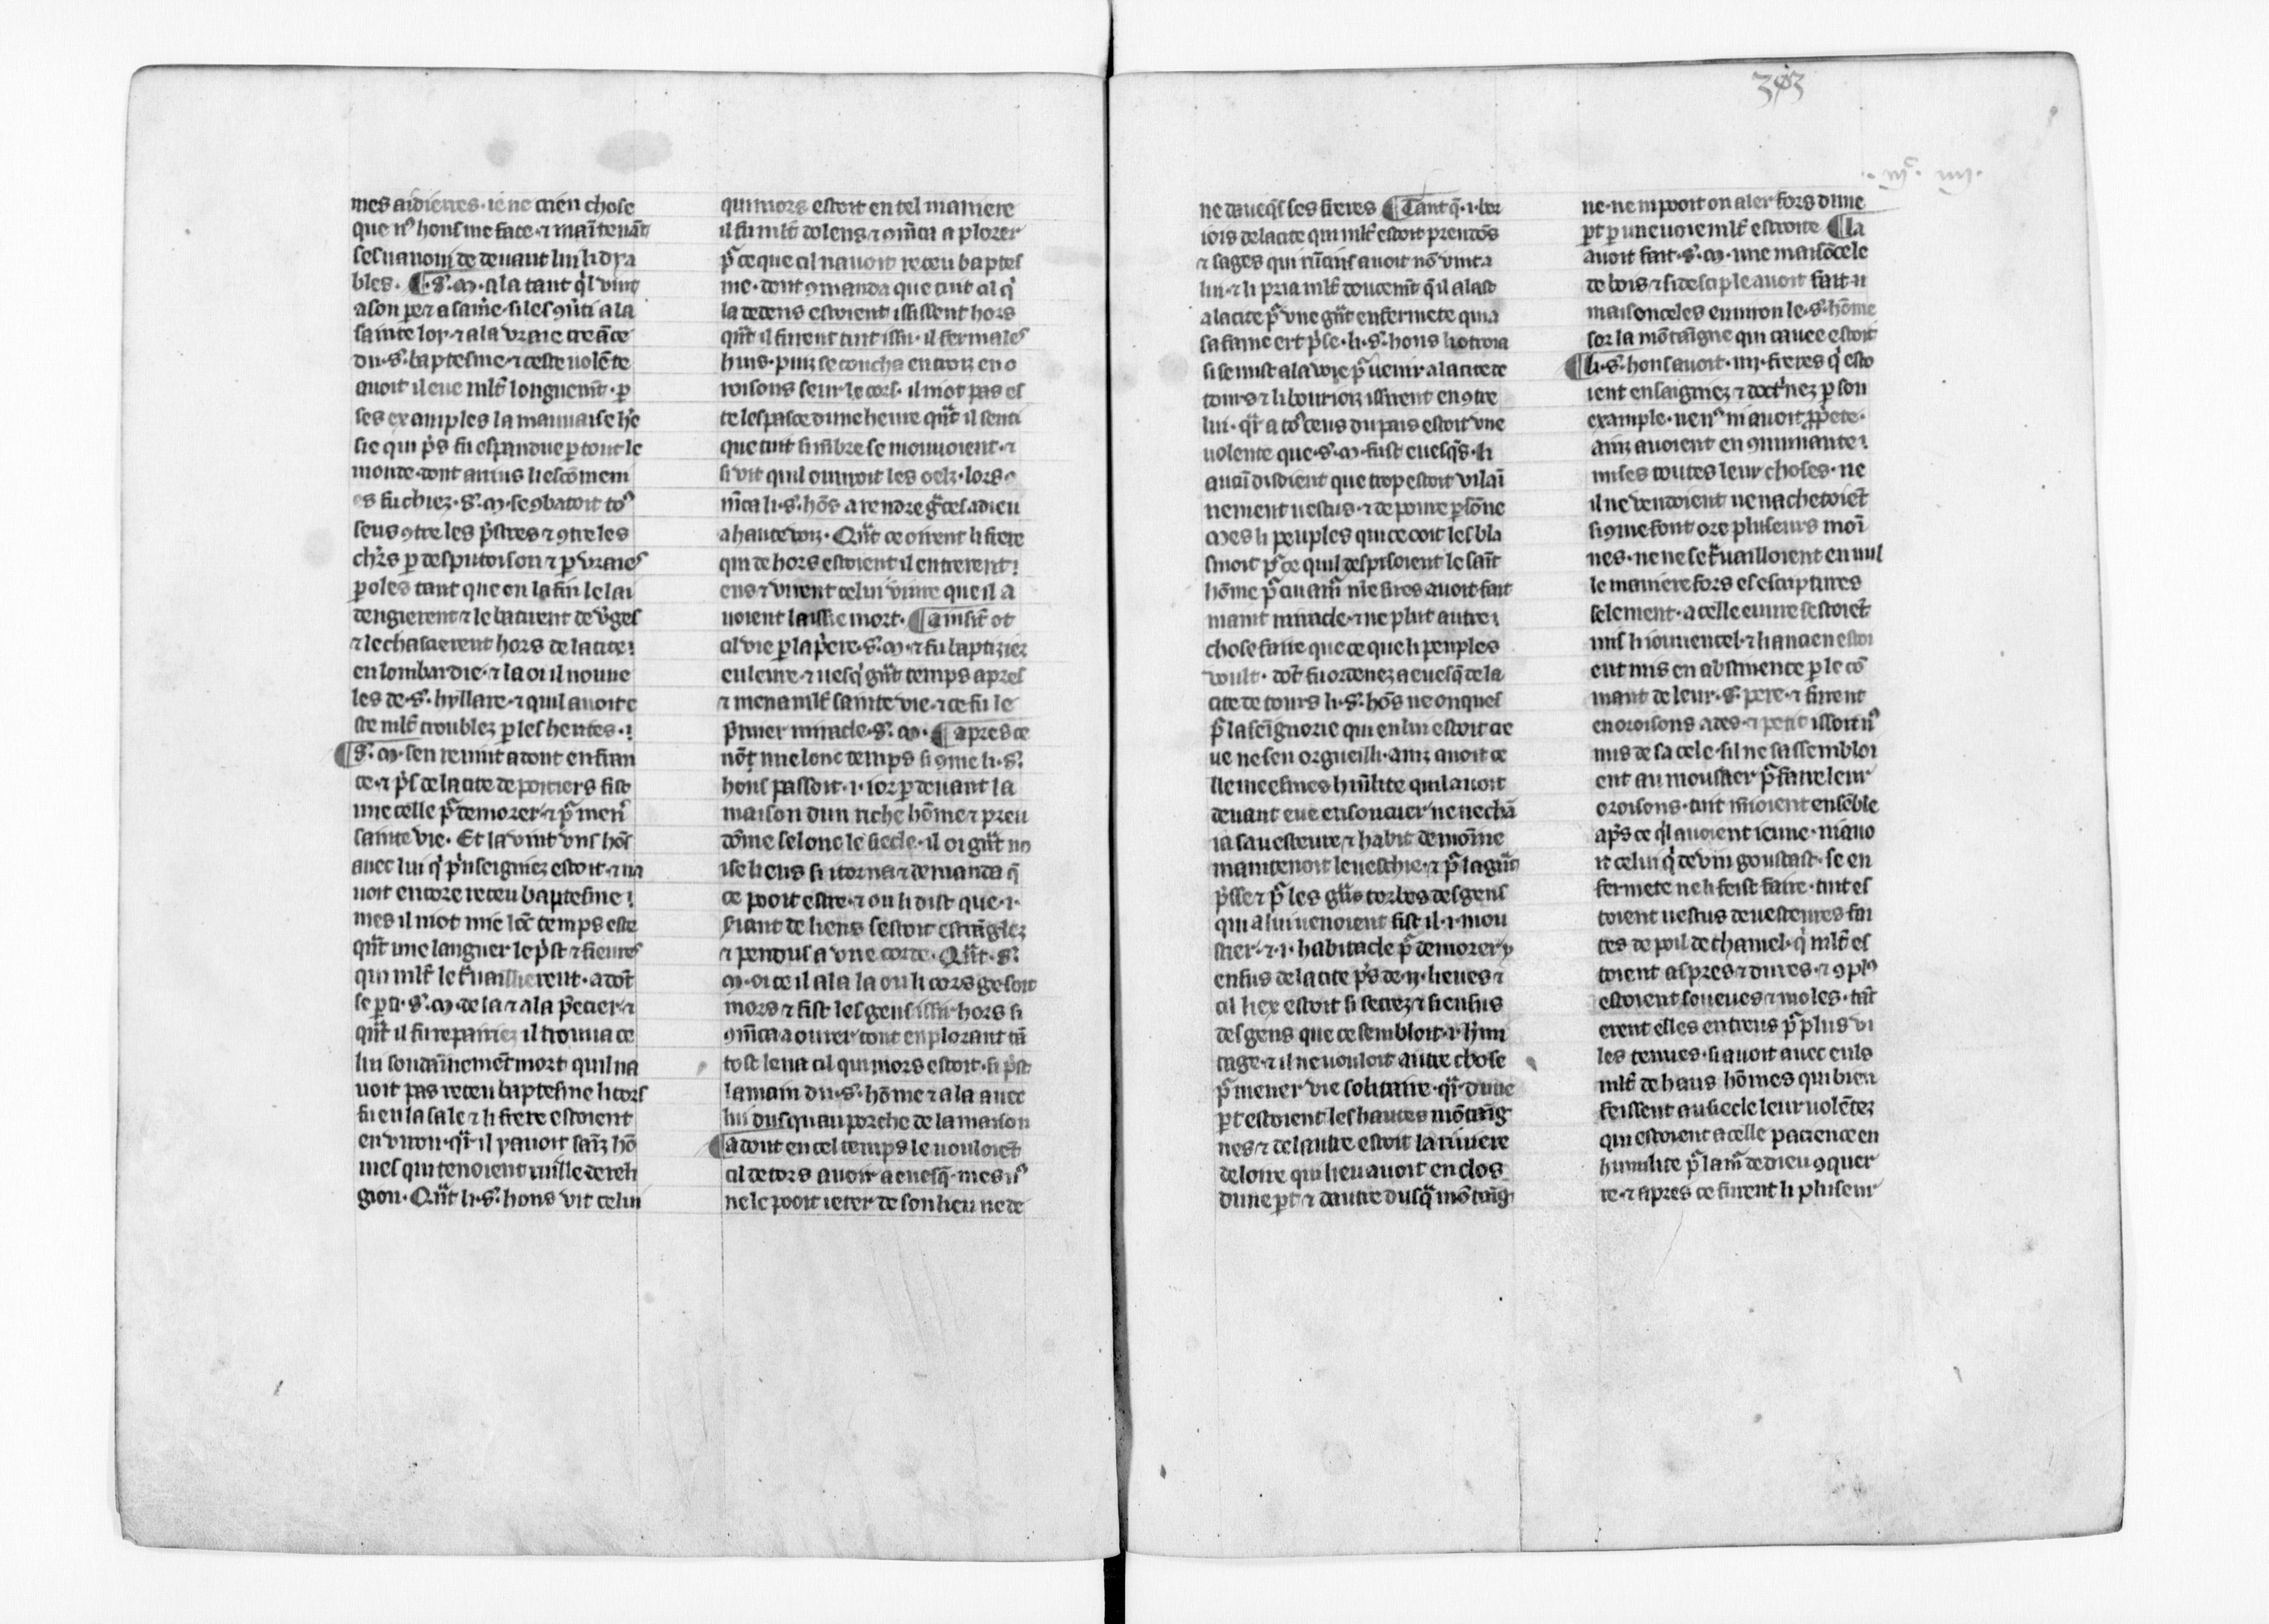 mes aidierres · ie ne crien chose
que nꝰ hons me face · ⁊ maītenāt
sesuanoui de deuant lui li dya
bles · ¶ · S᷑ · M · ala tant q̓l vint
a son pere ⁊ a sa mere · si les ꝯuti a la
sainte loy · ⁊ a la vraie creāce
du · s᷑ · baptesme · ⁊ ceste uolēte
auoit il eue ml̄t longuemt̄ · ꝑ
ses examples la mauuaise he
sie qui p̓s fu espandue ꝑ tout le
monde · dont
es fu chiez · S᷑ · M · se ꝯbatoit toꝰ
seus ꝯtre les p̓stres ⁊ ꝯtre les
ch̓rs ꝑ desputoison ⁊ ꝑ vraies
ꝑoles tant que en la fin le lai
dengierent ⁊ le batirent de v̓ges
⁊ le chascierent hors de la cite ⁊
en lombardie · ⁊ la oi il nouue
les de · s᷑ · hyllare · ⁊ quil auoit e
ste ml̄t troublez ꝑ les herites · ⁊
¶ S᷑ · M · sen reuint adont en fran
ce · ⁊ p̓s de la cite de poitiers fist
une celle p̄ demorer · ⁊ p̄ men̓
sainte vie · Et la vint vns hōs
auec lui q̓ p̓nseigniez estoit · ⁊ na
uoit encore receu baptesme ⁊
mes il niot mie lōc temps este
qn̄t une languer le p̓st ⁊ fieures
qui ml̄t le t̓uaillierent · adōt
se ꝑti · S᷑ · M · de la ⁊ ala p̄echier ⁊
qn̄t il fu repairiez il trouua ce
lui soudainemēt mort quil na
uoit pas receu baptesme li cors
fu en la sale ⁊ li frere estoient
environ · qr̄ il y auoit saīz hō
mes qui tenoient ruille de reli
gion · Qn̄t li · s᷑ · hons vit celui
qui mors estoit en tel maniere
il fu ml̄t dolens ⁊ ꝯmēca a plorer
p̄ ce que cil nauoit receu baptes
me · dont ꝯmanda que tuit cil q̓
la dedens estoient ississent hors
qn̄t il furent tuit issu · il ferma les
huis · puiz se coucha en croiz en o
roisons seur le cors · il niot pas es
te lespasce dune heure qn̄t il senti
que tuit si mēbre se mouuoient · ⁊
si vit quil ouuroit les oelz · lors ꝯ
mēca li · s᷑ · hōs a rendre gr̄ces a dieu
a haute voiz · Qn̄t ce oirent li frere
qui dehors estoient il entrerent ⁊
ens ⁊ virent celui viure que il a
uoient laissie mort · ¶ ainsīt ot
cil vie ꝑ la p̓ere · S᷑ · M · ⁊ fu baptiziez
en leure · ⁊ uesq̓ gn̄t temps apres
⁊ mena ml̄t sainte vie · ⁊ ce fu le
p̓mier miracle · S᷑ · M · ¶ apres ce
nōt mie lonc temps si ꝯme li · s᷑ ·
hons passoit · i · ior ꝑ deuant la
maison dun riche hōme ⁊ preu
dōme selonc le siecle · il oi gn̄t no
ise li ens si itorna ⁊ demanda q̄
ce pooit estre · ⁊ on li dist que · i ·
siant de liens sestoit estrāglez
⁊ pendus a vne corde · Qn̄t · S᷑ ·
M · oi ce il ala la ou li cors gesoit
mors ⁊ fist les gens issir hors si
ꝯmēca a ourer tout en plorant tā
tost leua cil qui mors estoit · si p̓st
la main du · s᷑ · hōme ⁊ ala auec
lui dusquau porche de la maison
¶ adont en cel temps le uouloiēt
cil de tors auoir a euesq̄ · mes nꝰ
ne le pooit ieter de son lieu ne de
383
ne dauecq̄s ses freres ¶ Tant q̄ · i · bor
iois de la cite qui ml̄t estoit preudōs
⁊ sages qui auoit nō vint a
lui · ⁊ li pria ml̄t doucemt̄ q̓l alast
a la cite p̄ vne gn̄t enfermete quia
sa fame ert p̓se · li · s᷑ · hons li otroia
si se mist a la voie p̄ uenir a la cite de
tours ⁊ li bouriois issirent en ꝯtre
lui · qr̄ a toꝰ ceus du pais estoit vne
uolente que · S᷑ · M · fust euesq̄s · li
aucū disoient que trop estoit vilai
nement uestus · ⁊ de poure ꝑsōne
Mes li peuples qui ce ooit les bla
smoit p̄ ce quil desprisoient le saīt
hōme p̄ cui am̄ nr̄e sires auoit fait
maint miracle · ⁊ ne plut autre ⁊
chose faire que ce que li peuples
voult · dōt fu ordenez a euesq̄ de la
cite de tours li · s᷑ · hōs ne onques
p̄ la seignorie qui en lui estoit cre
ue ne sen orgueilli · ainz auoit ce
lle meesmes hūilite quil auoit
deuant eue en soucuer ne ne chā
ia sa uesteure ⁊ habit de moīne
maintenoit leueschie · ⁊ p̄ la gn̄t
p̓sse ⁊ p̄ les gn̄s torbes des gens
qui a lui uenoient fist il · i · mou
stier · ⁊ · i · habitacle p̄ demorer y
ensus de la cite p̓s de · ij · lieues ⁊
cil liex estoit si secrez ⁊ si ensus
des gens que ce sembloit · i · h̓mi
tage · ⁊ il ne uouloit autre chose
p̄ mener vie solitaire · qr̄ dune
ꝑt estoient les hautes mōtaig
nes ⁊ de lautre estoit la riuiere
de loire qui lieu auoit enclos
dune ꝑt ⁊ dautre dusq̄ mōtaig
ne · ne ni pooit on aler fors dune
ꝑt ꝑ une uoie ml̄t estroite ¶ la
auoit fait · S᷑ · M · une maisōcele
de bois ⁊ si desciple auoit fait · ii
maisonceles enuiron le · s᷑ · hōme
sor la mōtaigne qui cauee estoit
¶ li · s᷑ · hons auoit · iiij · freres q̓ esto
ient ensaigniez ⁊ doct̓nez ꝑ son
example · ne nꝰ ni auoit ꝓprete ·
ainz auoient en ꝯmunaute ⁊
mises toutes leur choses · ne
il ne vendoient ne nachetoiēt
si ꝯme font ore pluseurs moi
nes · ne ne se t̓uailloient en nul
le maniere fors es escriptures
selement · a celle euure sestoiēt
mis li iouuencel · ⁊ li ancien estoi
ent mis en abstinence ꝑ le cō
mant de leur · s᷑ · pere · ⁊ furent
en oroisons ades · ⁊ petit issoit nꝰ
nus de sa cele · sil ne sassembloi
ent au moustier p̄ faire leur
oroisons · tuit māioient ensēble
ap̓s ce q̓l auoient ieune · ni auo
it celui q̓ de vin goustast · se en
fermete ne li feist faire · tuit es
toient uestus de uesteures fai
tes de poil de chamel · q̓ ml̄t es
toient aspres ⁊ dures · ⁊ ꝯ plꝰ
estoient soueues ⁊ moles · tāt
erent elles entreus p̄ plus vi
les tenues · si auoit auec euls
ml̄t de haus hōmes qui bien
feissent au siecle leur uolētez
qui estoient a celle pacience en
humilite p̄ lam̄ de dieu ꝯquer
re · ⁊ apres ce furent li pluseur